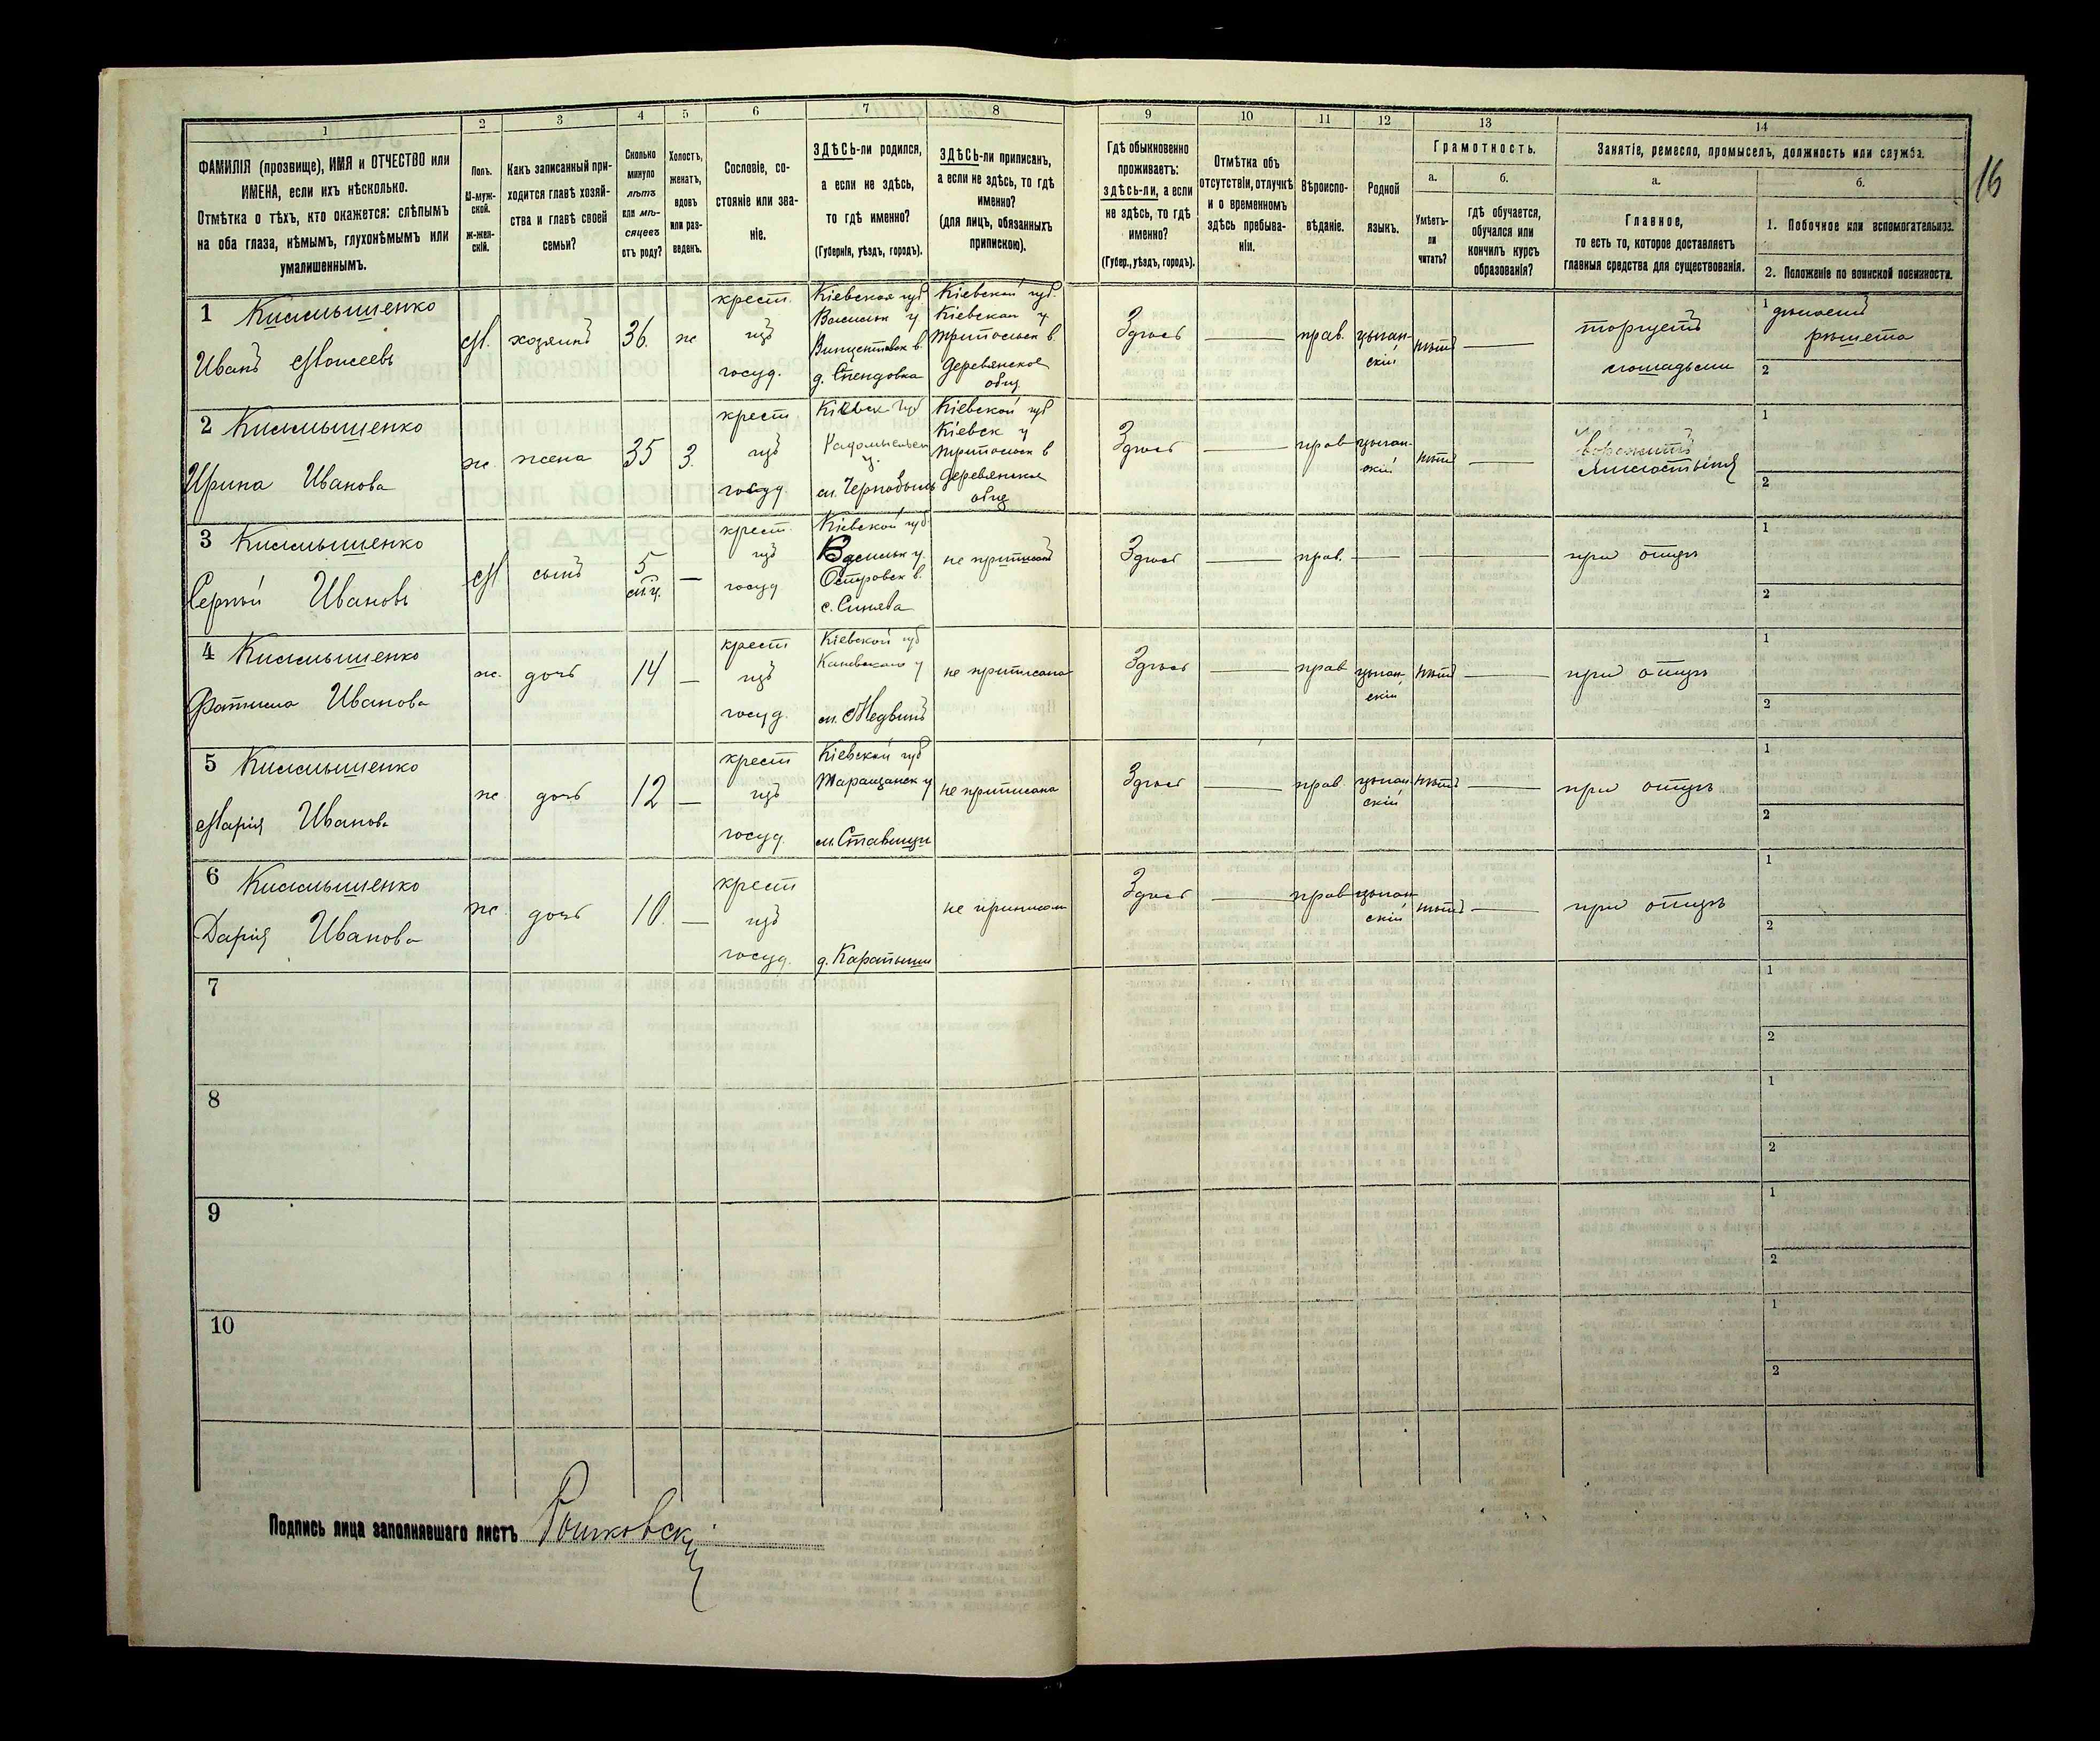 1
2
3
4
5
6
7
8
ФАМИЛІЯ (прозвище), ИМЯ и ОТЧЕСТВО или
ИМЕНА, если ихъ нѣсколько.
Отмѣтка о тѣхъ, кто окажется: слѣпымъ
на оба глаза, нѣмымъ, глухонѣмымъ или
умалишеннымъ.
Полъ.
М-муж-
ской.
Ж-жен-
скій.
Какъ записанный при-
ходится главѣ хозяй-
ства и главѣ своей
семьи?
Сколько
минуло
лѣтъ
или мѣ-
сяцевъ
отъ роду?
Холостъ,
женатъ,
вдовъ
или раз-
веденъ.
Сословіе, со-
стояніе или зва-
ніе.
ЗДѢСЬ-ли родился,
а если не здѣсь,
то гдѣ именно?
(Губернія, уѣздъ, городъ).
ЗДѢСЬ-ли приписанъ,
а если не здѣсь, то гдѣ
именно?
(для лицъ, обязанныхъ
припискою).
9
10
11
12
13
14
Гдѣ обыкновенно
проживаетъ:
здѣсь-ли, а если
не здѣсь, то гдѣ
именно?
(Губер., уѣздъ, городъ).
Отмѣтка объ
отсутствіи, отлучкѣ
и о временномъ
здѣсь пребыва-
ніи.
Вѣроиспо-
вѣданіе.
Родной
языкъ.
Грамотность.
а.
Умѣетъ-
ли
читать?
б.
гдѣ обучается,
обучался или
кончилъ курсъ
образованія?
Занятіе, ремесло, промыселъ, должность или служба.
а.
Главное,
то есть то, которое доставляетъ
главныя средства для существованія.
б.
1. Побочное или вспомогательное.
2. Положеніе по воинской повинности.
16
1
Иванъ Моисеевъ
М.
хозяинъ
36.
ж
крест.
изъ
госуд.
Кіевская губ
Васильк у.
д.
Кіевской губ.
Кіевскаго у
Трипольск в
Деревянское
общ.
Здѣсь
прав.
цыган-
скій
нѣтъ
торгуетъ
лошадьми
1 дѣлаетъ
рѣшета
2
2
Ирина Иванова
ж.
жена
35
З.
крест
изъ
госуд
Кіевск губ
Радомысльск
у.
м. Чернобыль
Кіевской губ
Кіевск у
Трипольск в
Деревянское
общ
Здѣсь
прав
цыган-
скій
нѣтъ
ворожитъ
1
2
3
Сергѣй Ивановъ
М
сынъ
5
м-ц.
—
крест.
изъ
госуд
Кіевской губ.
Васильк у.
Островск в.
с. Синява
не приписанъ
Здѣсь
прав.
при отцѣ
1
2
4
Иванова
ж.
дочь
14
—
крест
изъ
госуд.
Кіевской губ
Каневскаго у
м. Медвинъ
не приписана
Здѣсь
прав
цыган-
скій
нѣтъ
при отцѣ
1
2
5
Марія Иванова
ж
дочь
12
—
крест
изъ
госуд.
Кіевской губ
Таращанск у
м. Ставищи
не приписана
Здѣсь
прав.
цыган-
скій
нѣтъ
при отцѣ
1
2
6
Дарія Иванова
ж.
дочь
10.
—
крест
изъ
госуд.
д. Карапыши
не приписан
Здѣсь
прав
цыган-
скій
нѣтъ
при отцѣ
1
2
7
1
2
8
1
2
9
1
2
10
1
2
Подпись лица заполнявшаго листъ